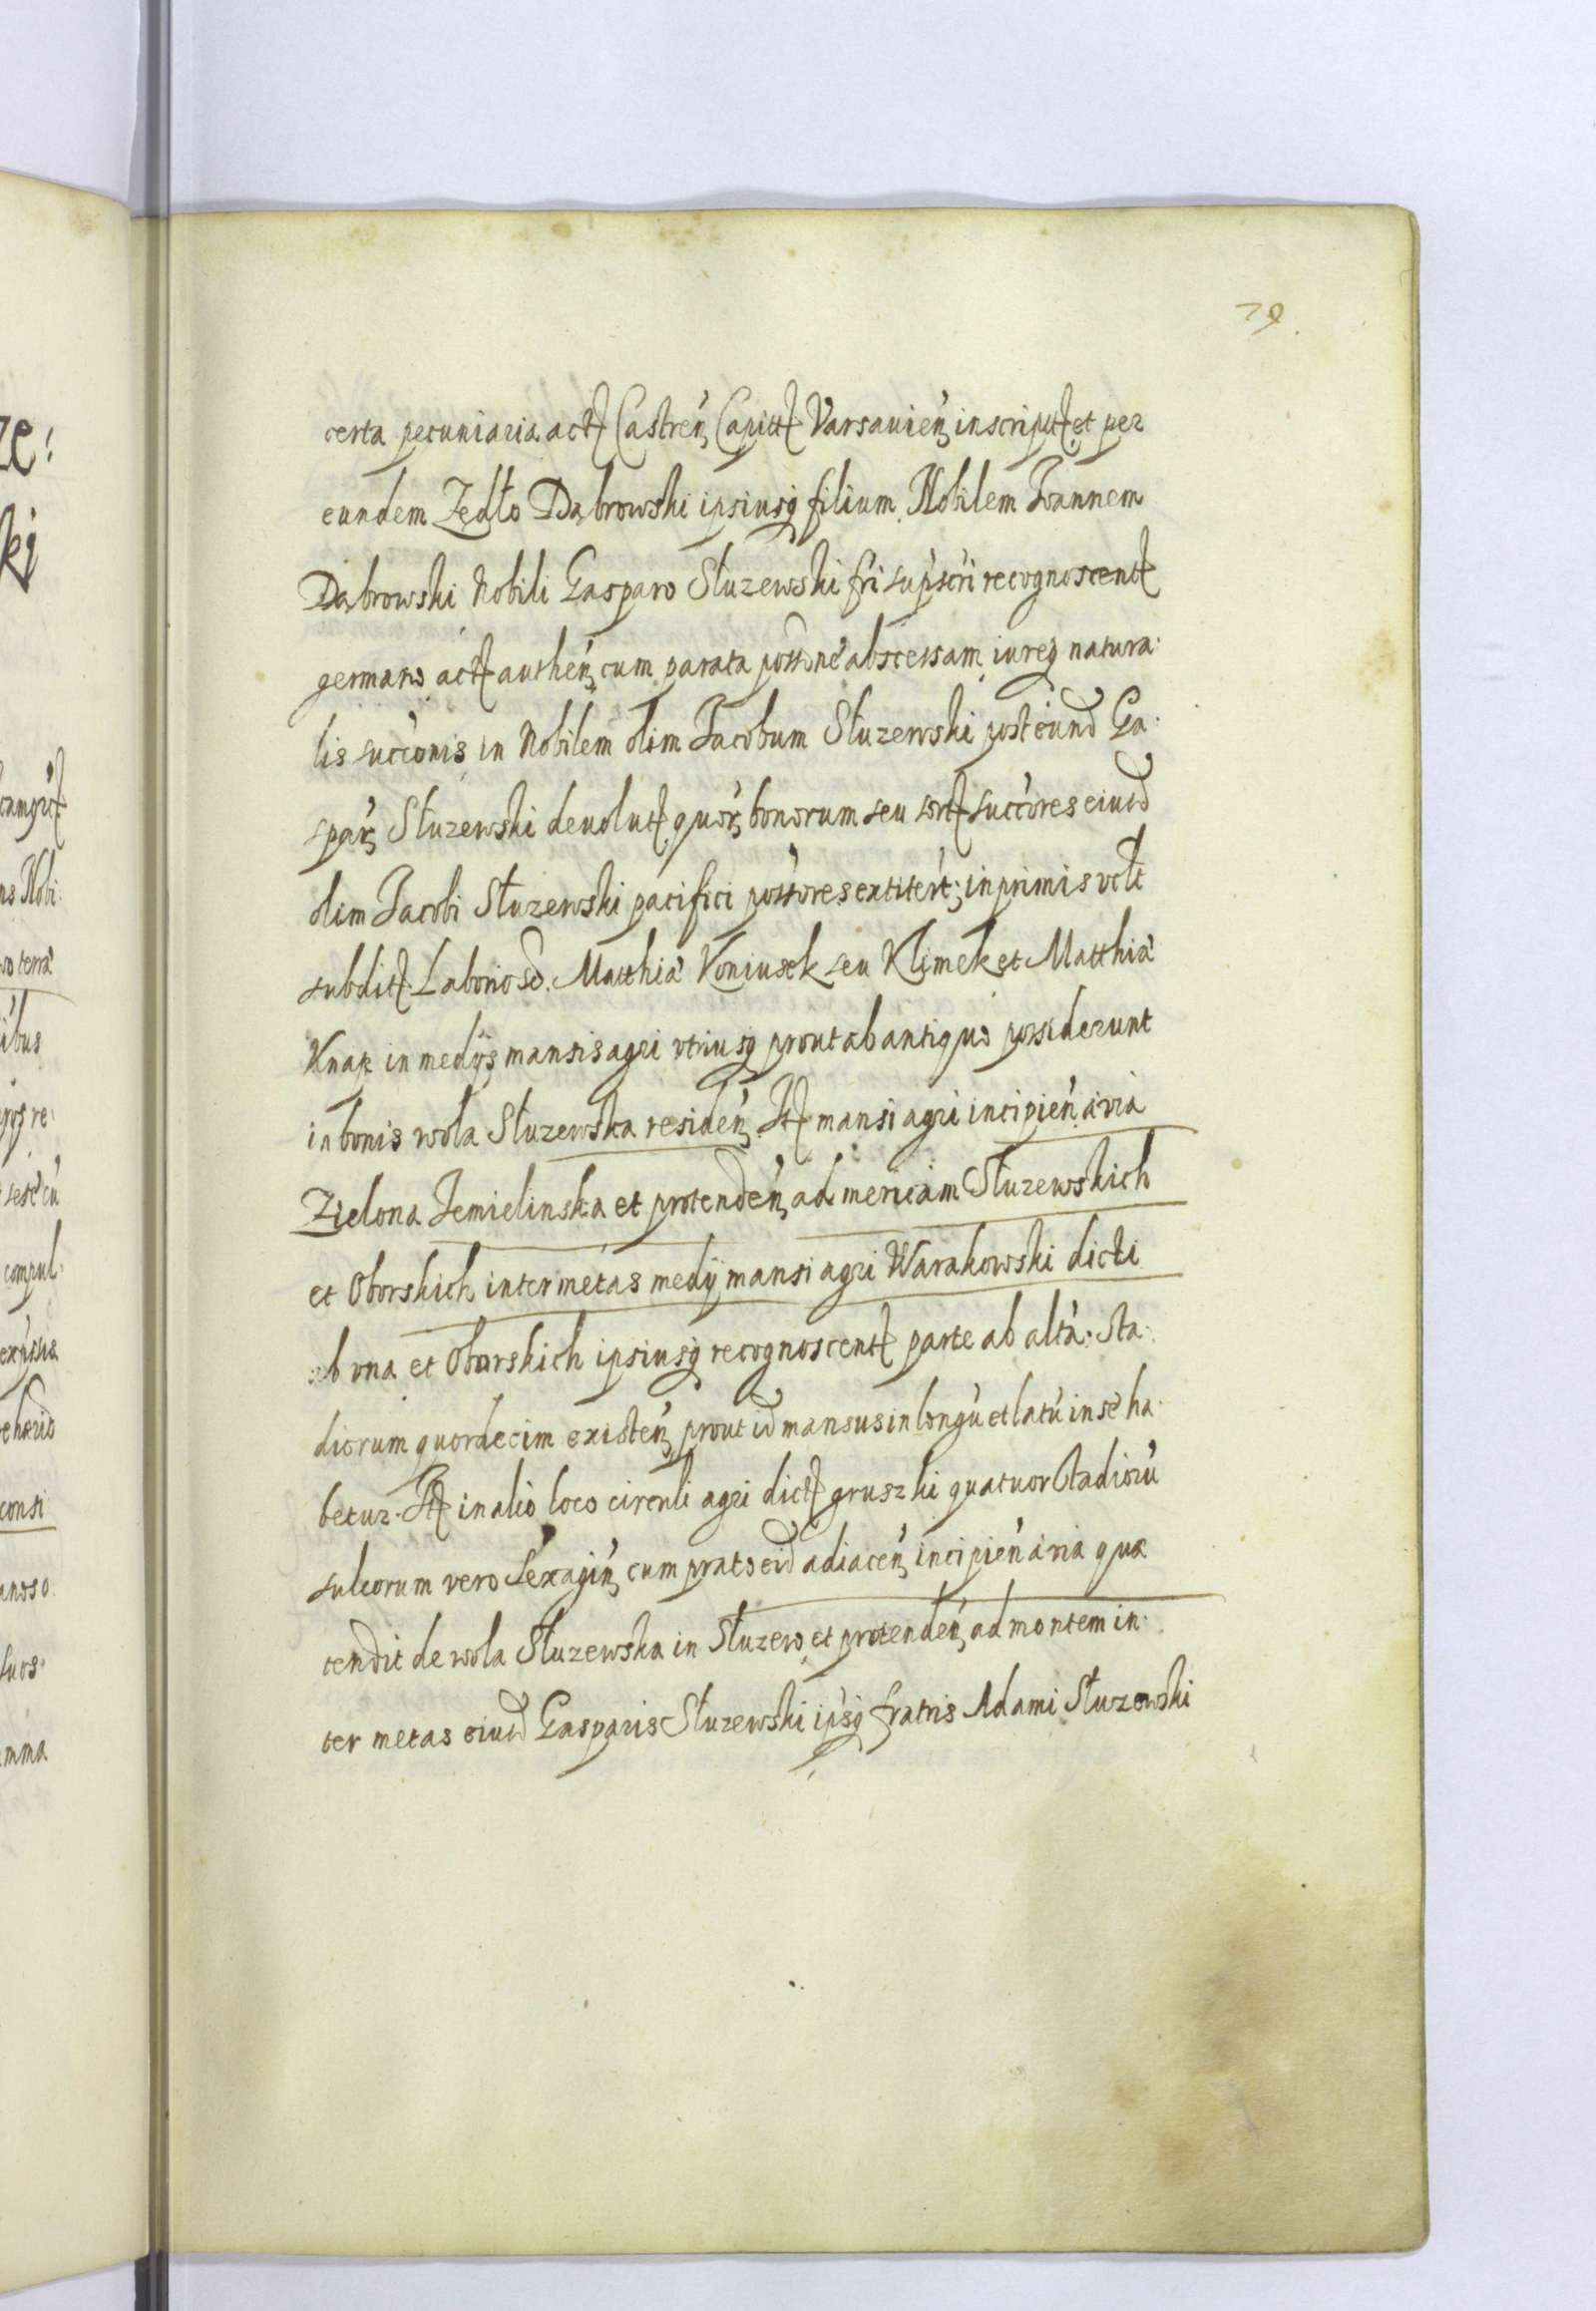 79
certa pecuniaria act Castren Capitt Varsavien inscript et per
eundem Zedło Dąbrowski ipsiusq filium Nobilem Joannem
Dąbrowski Nobili Gasparo Słuzewski fri supscri recognoscent
germano act authen cum parata possone abscessam iureq natura:
lis succonis in Nobilem olim Jacobum Słuzewski post eund Ga:
spar Słuzewski deuolut quor bonorum seu sort succores eiusd
olim Jacobi Słuzewski pacifici possores extitert; inprimis vclt
subdit Laborioso. Matthia Koniusek seu Klimek et Matthia
Knap in medijs mansis agri vtriusq prout ab antiquo possiderunt
in bonis wola Słuzewska residen. It mansi agri incipien á via
Zielona Jemielinska et protenden ad mericam Słuzewskich
et Oborskich inter metas medij mansi agri Warakowski dicti
ab vna et Oborskich ipsiusq recognoscent parte ab altá. Sta:
diorum quordecim existen prout id mansus in longu et latu in se ha:
betur. It in alio loco circuli agri dict gruszki quatuor Stadioru
sulcorum vero sexagin cum prato eid adiacen incipien á via quæ
tendit de wola Słuzewska in Słuzew et protenden ad montem in:
ter metas eiusd Gasparis Słuzewski ipsq fratris Adami Słuzewski
ze!
kj
ns Nobi:
vo terrá
ibus
compul:
consi
suos.